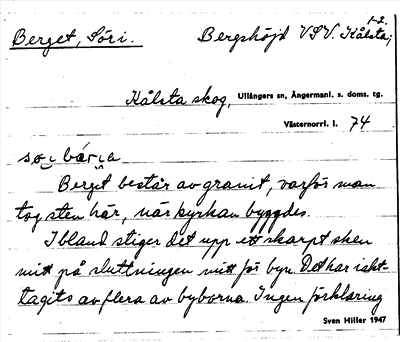 1-2.
Berget, Söri. Bergshöjd V.S.V. Kålsta;
Kålsta skog, Ullångers sn, Ångermanl. s. doms. tg.
Västernorrl. l. 74
Berget består av granit, varför man
tog sten här, när kyrkan byggdes.
Ibland stiger det upp ett skarpt sken
mitt på sluttningen mitt för byn. Det har iakt-
tagits av flera av byborna. Ingen förklaring
Sven Hiller 1947